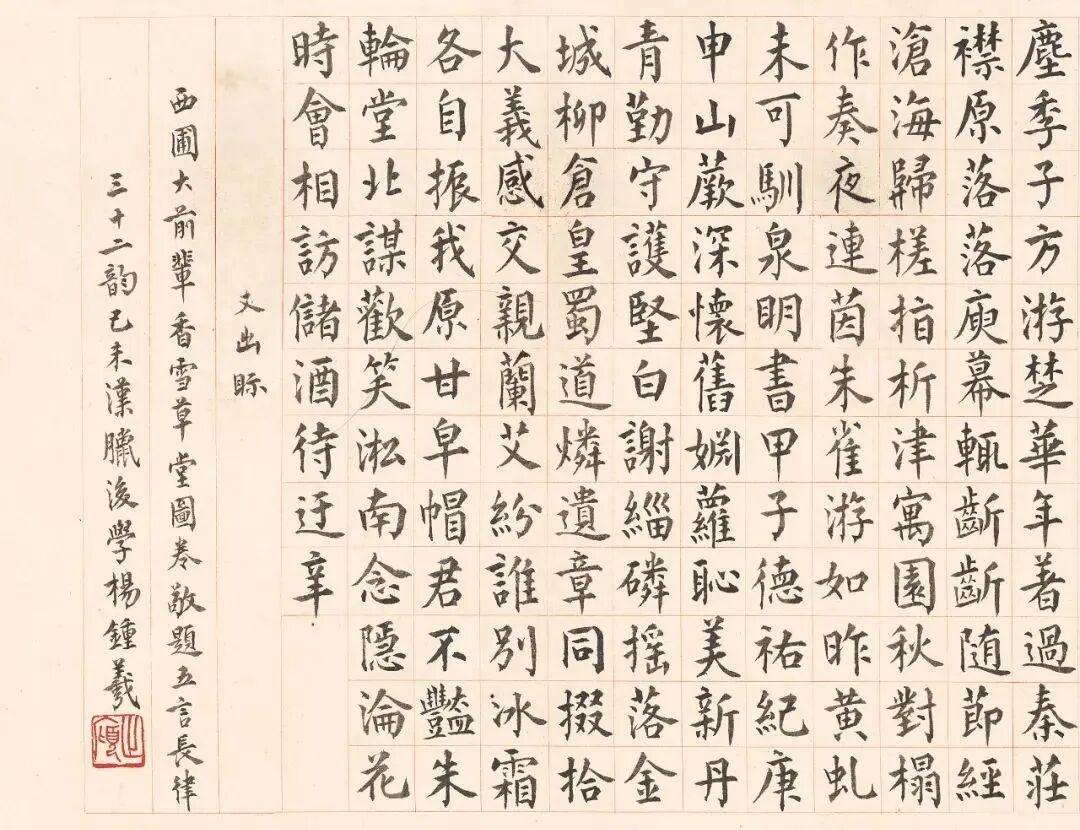 塵季子方游楚華年著過秦莊
襟原落落庾幕輒齗齗随節經
滄海歸槎指析津寓園秋對榻
作奏夜連茵朱雀游如昨黄虬
未可馴泉明書甲子德祐紀庚
申山蕨深懷舊嫺蘿恥美新丹
青勤守護堅白謝緇磷摇落金
城柳倉皇蜀道燐遺章同掇拾
大義感交親蘭艾紛誰別冰霜
各自振我原甘皁帽君不豔朱
輪堂北謀歡笑淞南念隱淪花
時會相訪儲酒待迂辛
支出眎
西圃大前輩香雪草堂圖卷敬題五言長律
三十二韵己未漢臘後學楊鍾羲